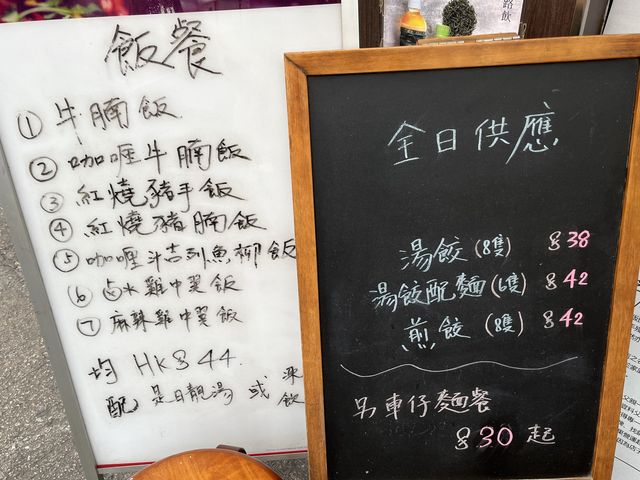 飯餐
① 牛腩飯
② 咖喱牛腩飯
③ 紅燒豬手飯
④ 紅燒豬腩飯
⑤ 咖喱汁吉列魚柳飯
⑥ 卤水雞中翼飯
⑦ 麻辣雞中翼飯
均 HK$44
配 是日靚湯 或 凍飲
全日供應
湯餃 (8隻) $38
湯餃配麵 (6隻) $42
煎餃 (8隻) $42
另車仔麵餐
$30 起